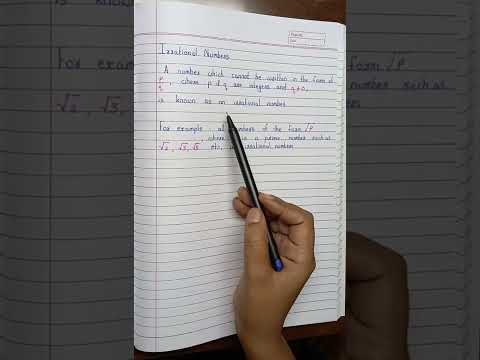 Irrational Numbers
A number which cannot be written in the form of
p/q, where p & q are integers and q≠0,
is known as an irrational number.
For example, all numbers of the form √P
, where is a prime number such as
√2, √3, √5 etc, irrational numbers